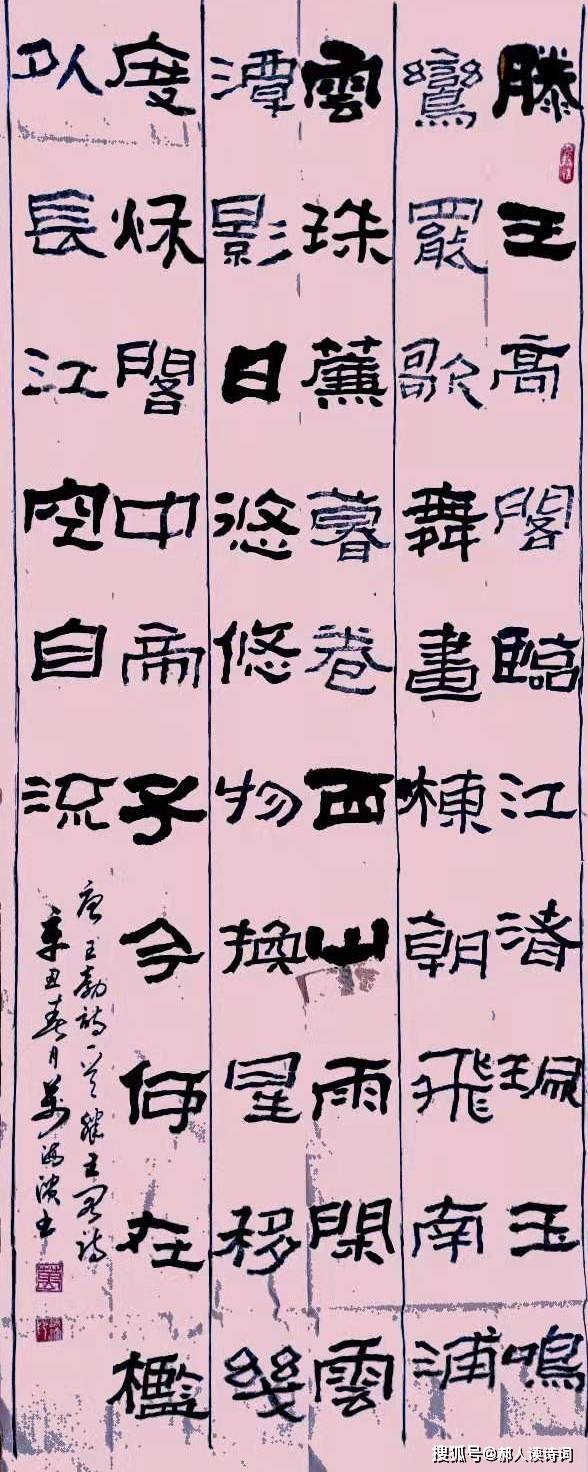 滕王高閣臨江渚珮玉鳴
鸞罷歌舞畫棟朝飛南浦
雲珠薕暮卷西山雨閑雲
潭影日悠悠物換星移幾
度秌閣中帝子今何在檻
外長江空自流
唐王勃詩一首滕王閣詩
辛丑春月萬濱書
搜狐号@郝人读诗词